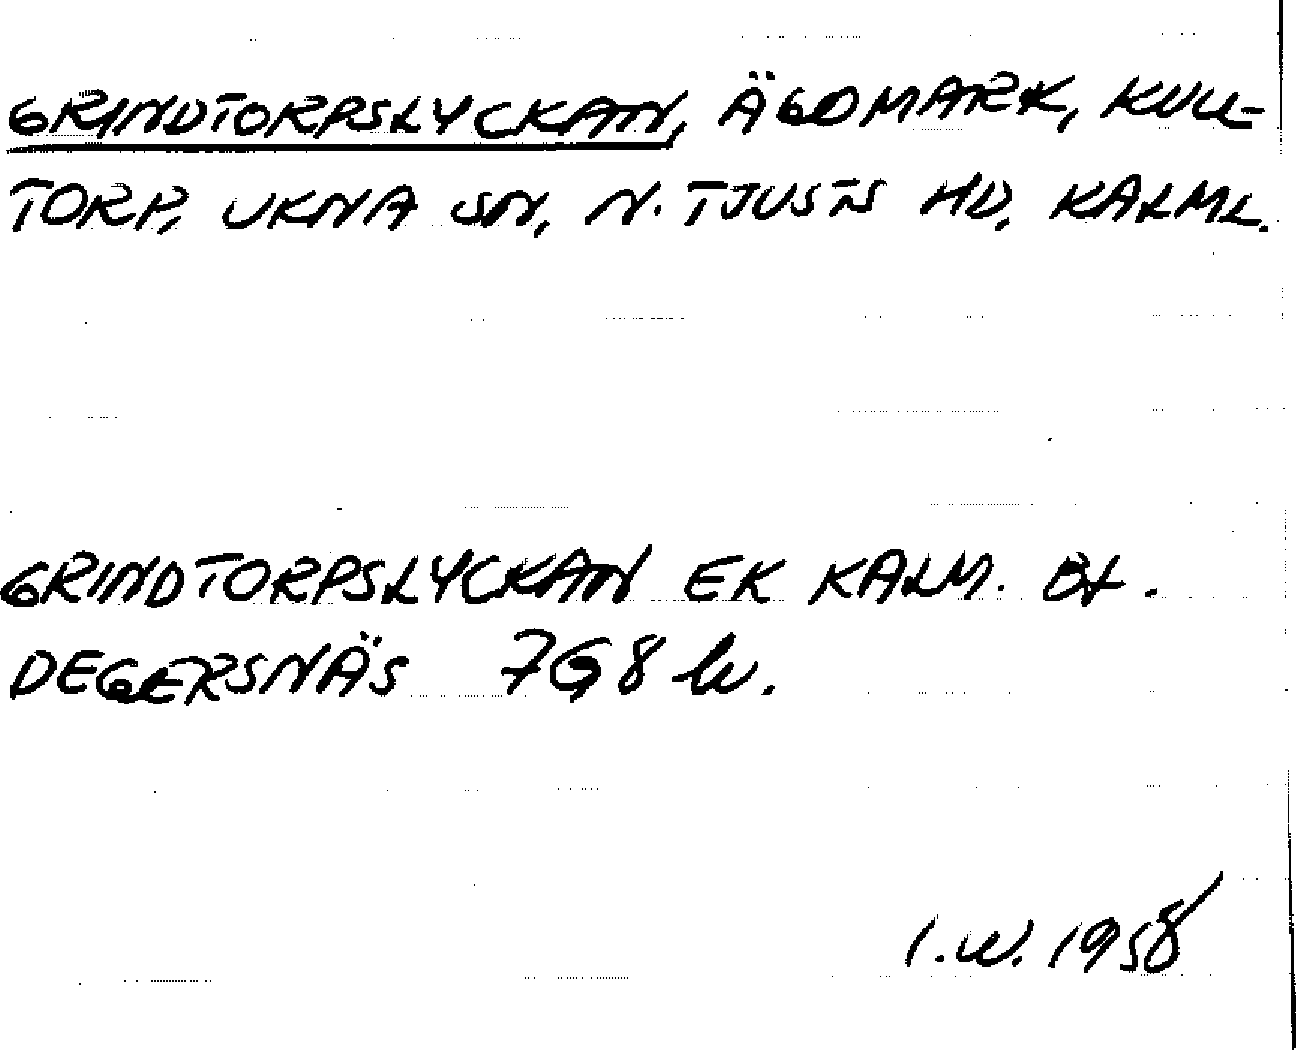 GRINDTORPSLYCKAN, ÄGOMARK, KULL-
TORP, UKNA SN, N. TJUSTS HD, KALML.
GRINDTORPSLYCKAN EK KALM. BL.
DEGERSNÄS 7G8
I.W. 1958